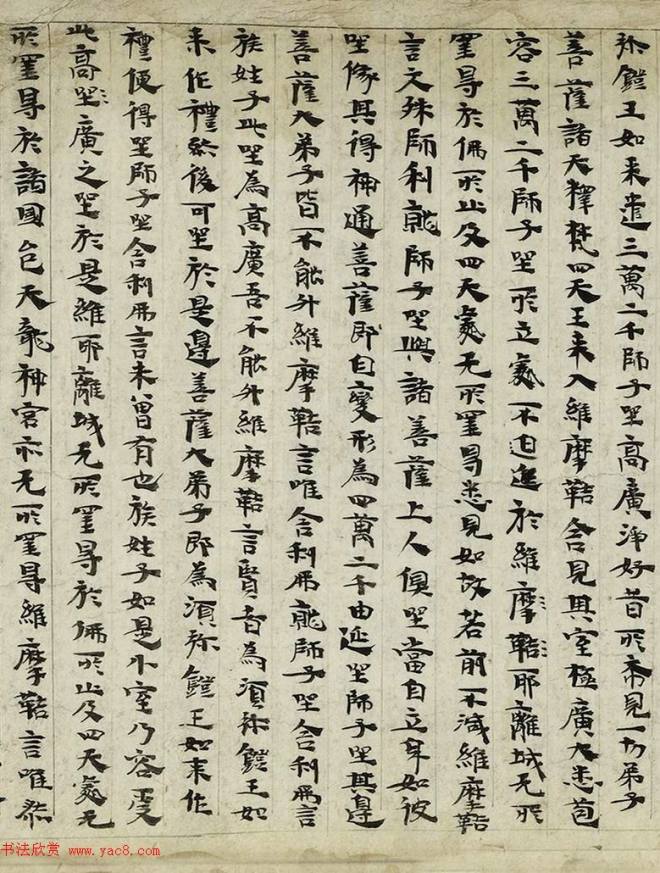 弥鐙王如来遣三萬二千師子坐高廣淨好昔所希見一切弟子
菩薩諸天釋梵四天王来入維摩鞊舍見其室極廣大悉苞
容三萬二千師子坐所立處不迫迮於維摩鞊耶離城无所
罣㝵於佛所止及四天處无所罣㝵悉見如故若前不減維摩鞊
言文殊師利就師子坐與諸菩薩上人俱坐當自立身如彼
坐像其得神通菩薩即自變形為四萬二千由延坐師子坐其邊
菩薩大弟子皆不能升維摩鞊言唯舍利弗就師子坐舍利弗言
族姓子此坐為高廣吾不能升維摩鞊言賢者為須弥鐙王如
来作禮然後可坐於是邊菩薩大弟子即為須弥鐙王如来作
禮便得坐師子坐舍利弗言未曾有也族姓子如是小室乃容受
此高坐廣之坐於是維耶離城无所罣㝵於佛所止及四天處无
所罣㝵於諸國邑天龍神宮亦无所罣㝵維摩鞊言唯然
书法欣赏 www.yac8.com